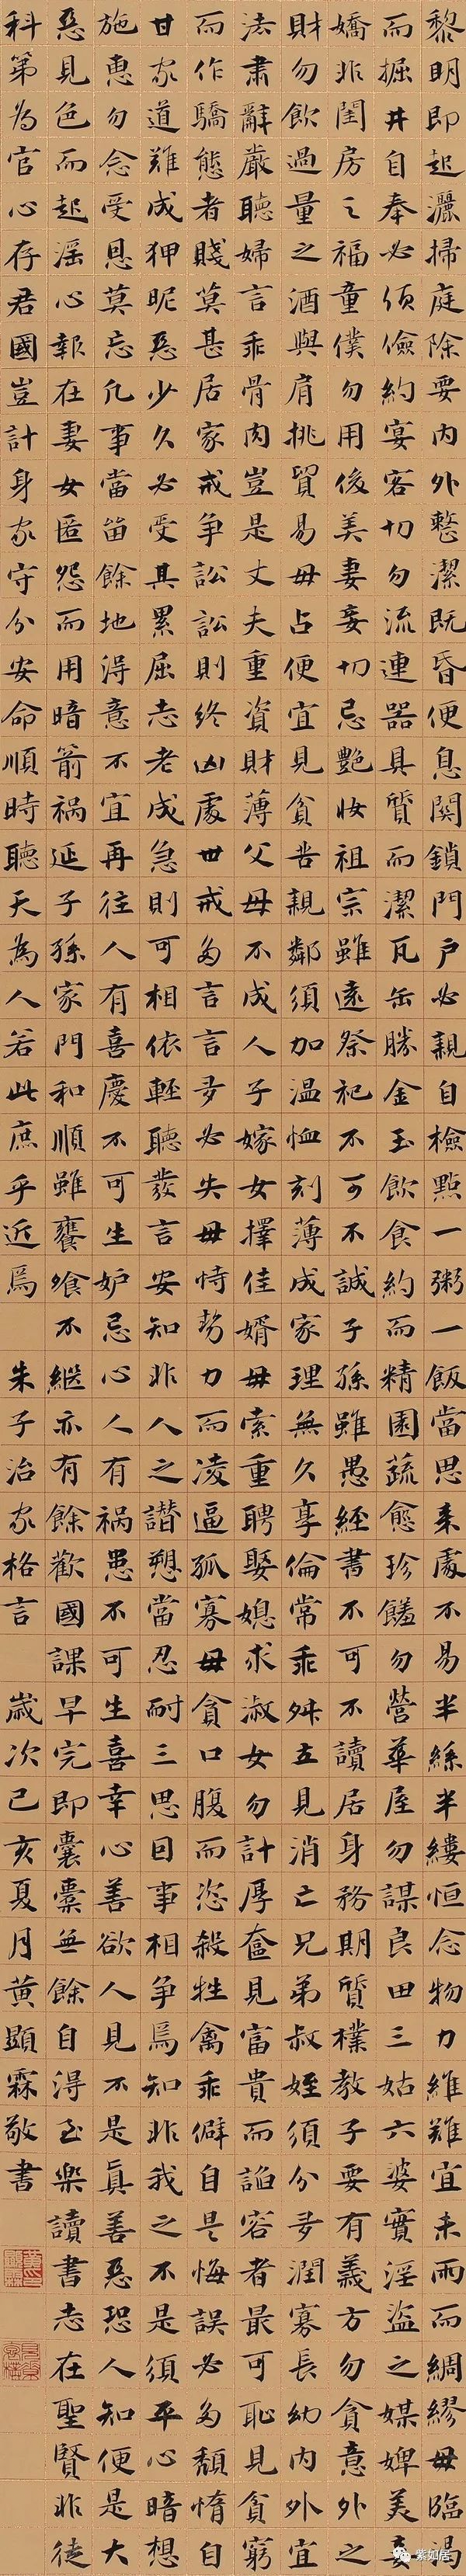 黎明即起灑掃庭除要內外整潔既昏便息關鎖門戶必親自檢點一粥一飯當思來處不易半絲半縷恒念物力維難宜未雨而綢繆毋臨渴
而掘井自奉必須儉約宴客切勿流連器具質而潔瓦缶勝金玉飲食約而精園蔬愈珍饈勿營華屋勿謀良田三姑六婆實淫盜之媒婢美妾
嬌非閨房之福童僕勿用俊美妻妾切忌艷妝祖宗雖遠祭祀不可不誠子孫雖愚經書不可不讀居身務期質樸教子要有義方勿貪意外之
財勿飲過量之酒與肩挑貿易毋占便宜見貧苦親鄰須加温恤刻薄成家理無久享倫常乖舛立見消亡兄弟叔姪須分多潤寡長幼內外宜
法肅辭嚴聽婦言乖骨肉豈是丈夫重資財薄父母不成人子嫁女擇佳婿毋索重聘娶媳求淑女勿計厚奩見富貴而諂容者最可恥見貧窮
而作驕態者賤莫甚居家戒爭訟訟則終凶處世戒多言言多必失毋恃勢力而凌逼孤寡毋貪口腹而恣殺牲禽乖僻自是悔誤必多頹惰自
甘家道難成狎昵惡少久必受其累屈志老成急則可相依輕聽發言安知非人之譖愬當忍耐三思因事相爭焉知非我之不是須平心暗想
施惠勿念受恩莫忘凡事當留餘地得意不宜再往人有喜慶不可生妒忌心人有禍患不可生喜幸心善欲人見不是真善惡恐人知便是大
惡見色而起淫心報在妻女匿怨而用暗箭禍延子孫家門和順雖饔飧不繼亦有餘歡國課早完即囊橐無餘自得至樂讀書志在聖賢非徒
科第為官心存君國豈計身家守分安命順時聽天為人若此庶乎近焉 朱子治家格言 歲次己亥夏月黃顯霖敬書
紫如居